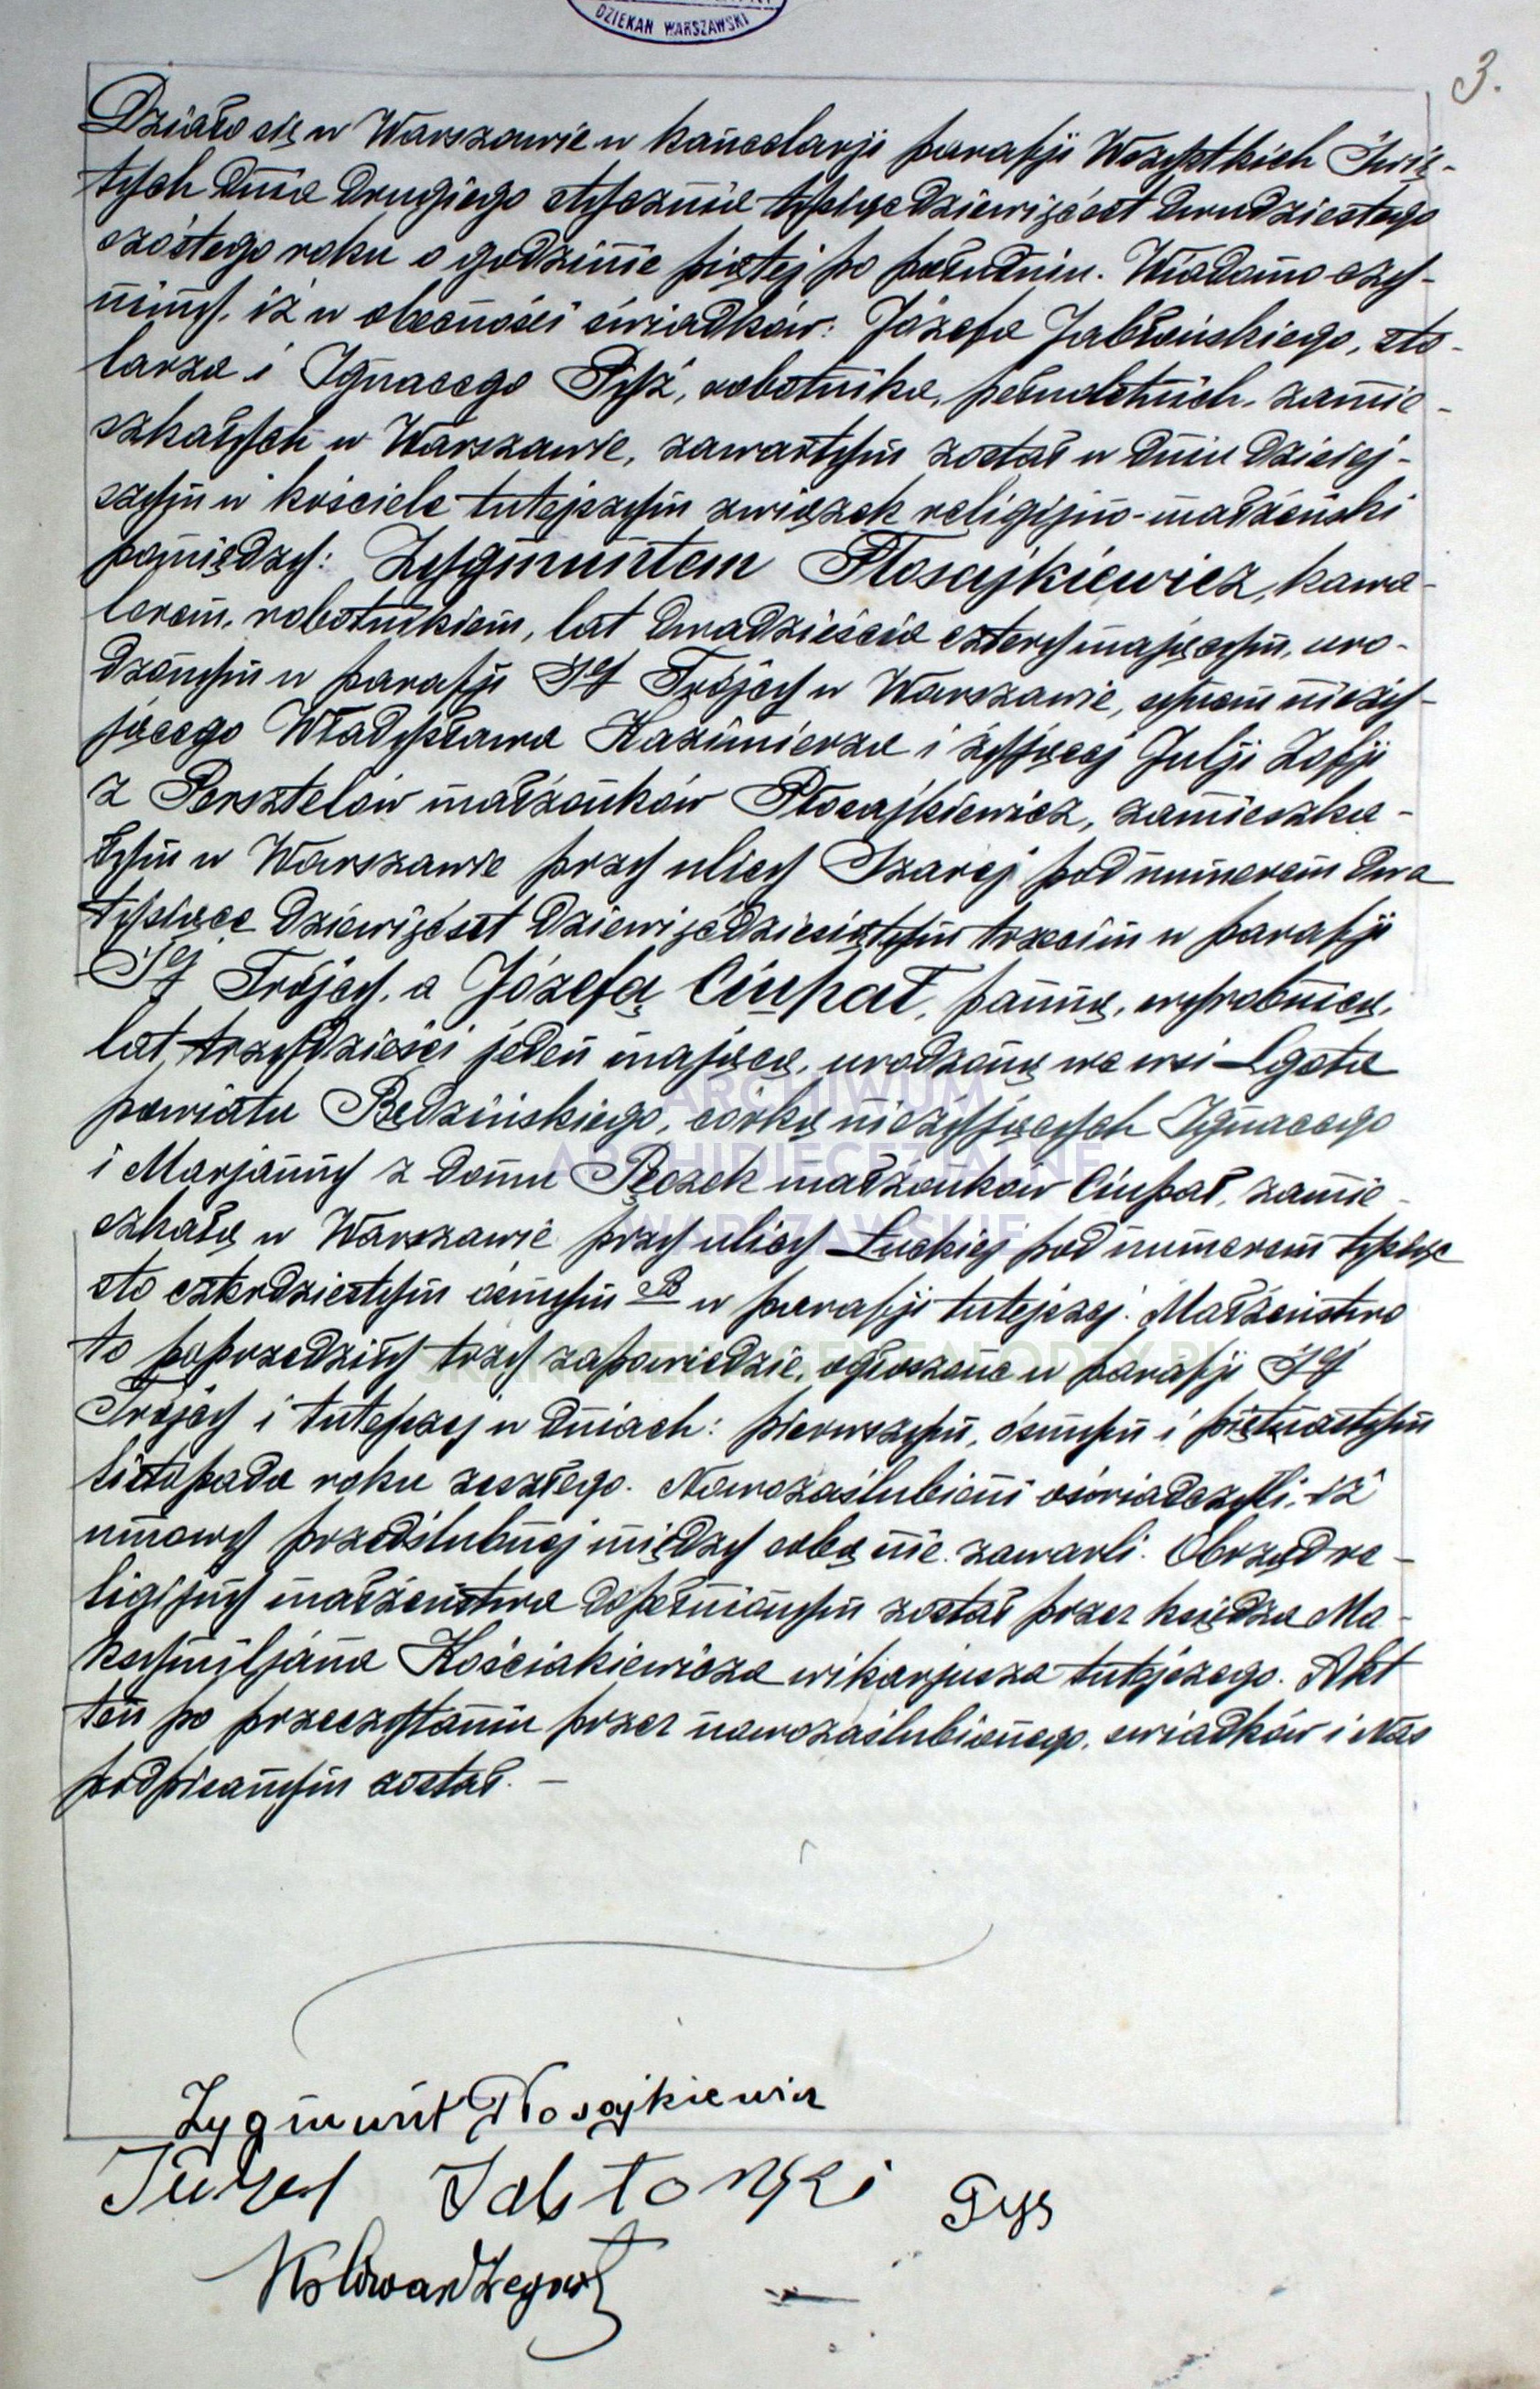 DZIEKAN WARSZAWSKI
3.
Działo się w Warszawie w kancelarji parafji Wszystkich Świę-
tych dnia drugiego stycznia tysiąc dziewięćset dwudziestego
szóstego roku o godzinie piątej po południu. Wiadomo czy-
nimy, iż w obecności świadków: Józefa Jabłońskiego, sto-
larza i Ignacego Pyś, robotnika, pełnoletnich, zamie-
szkałych w Warszawie, zawartym został w dniu dzisiej-
szym w kościele tutejszym związek religijno-małżeński
pomiędzy: Zygmuntem Płosajkiewicz, kawa-
lerem, robotnikiem, lat dwadzieścia cztery mającym, uro-
dzonym w parafji Ś-ej Trójcy w Warszawie, synem nieży-
jącego Władysława Kazimierza i żyjącej Julji Zofji
z Persztelów małżonków Płosajkiewicz, zamieszka-
łym w Warszawie przy ulicy Szarej pod numerem dwa
tysiące dziewięćset dziewięćdziesiątym trzecim w parafji
Ś-ej Trójcy, a Józefą Ciupał, panną, wyrobnicą,
lat trzydzieści jeden mającą, urodzoną we wsi Lgota
powiatu Będzińskiego, córką nieżyjących Ignacego
i Marjanny z domu Pęczek małżonków Ciupał, zamie-
szkałą w Warszawie przy ulicy Łuckiej pod numerem tysiąc
sto czterdziestym ósmym B w parafji tutejszej. Małżeństwo
to poprzedziły trzy zapowiedzie, ogłoszone w parafji Ś-ej
Trójcy i tutejszej w dniach: pierwszym, ósmym i piętnastym
listopada roku zeszłego. Nowozaślubieni oświadczyli, iż
umowy przedślubnej między sobą nie zawarli. Obrzęd re-
ligijny małżeństwa dopełnionym został przez księdza Ma-
ksymiljana Kościakiewicza wikarjusza tutejszego. Akt
ten po przeczytaniu przez nowozaślubionego, świadków i Nas
podpisanym został. –
ARCHIWUM
ARCHIDIECEZJALNE
WARSZAWSKIE
SKANOTEKA.GENEALODZY.PL
Zygmunt Płosajkiewicz
Józef Jabłonski Pyś